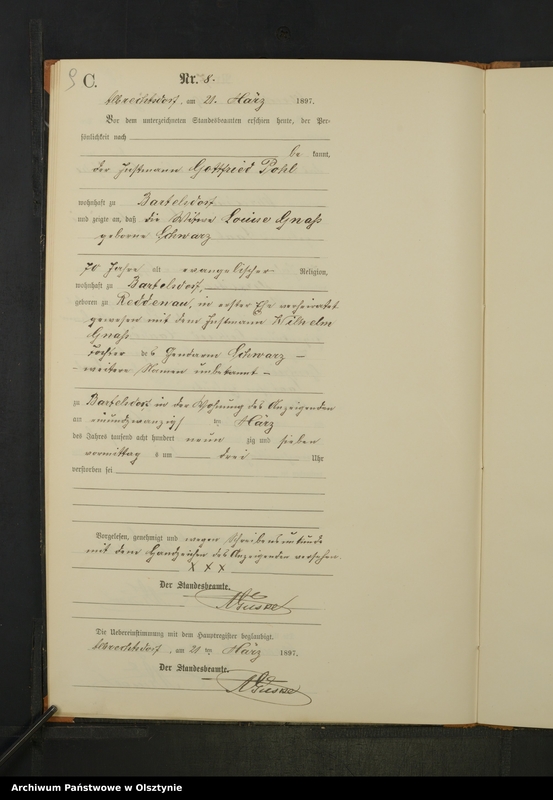 9 C.
Nr. 8.
Albrechtsdorf, am 21. März 1897.
Vor dem unterzeichneten Standesbeamten erschien heute, der Per-
sönlichkeit nach
be kannt,
der Instmann Gottfried Pohl
wohnhaft zu Bartelsdorf
und zeigte an, daß die Witwe Louise Gnaß
geborne Schwarz
70 Jahre alt evangelischer Religion,
wohnhaft zu Bartelsdorf,
geboren zu Reddenau, in erster Ehe verheiratet
gewesen mit dem Instmann Wilhelm
Gnaß
Tochter des Gendarm Schwarz –
– weitere Namen unbekannt –
zu Bartelsdorf in der Wohnung des Anzeigenden
am einundzwanzigsten März
des Jahres tausend acht hundert neun zig und sieben
vormittag s um drei Uhr
verstorben sei
Vorgelesen, genehmigt und wegen Schreibensunkunde
mit dem Handzeichen des Anzeigenden versehen
x x x
Der Standesbeamte.
Die Uebereinstimmung mit dem Hauptregister beglaubigt.
Albrechtsdorf, am 21 ten März 1897.
Der Standesbeamte.
Archiwum Państwowe w Olsztynie